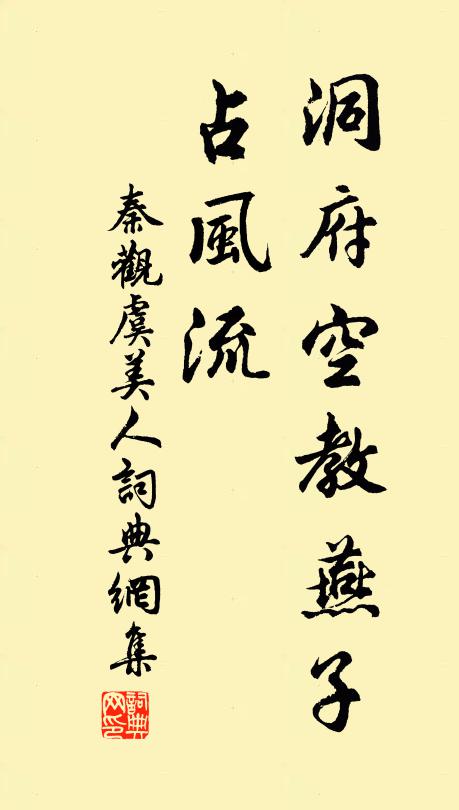 洞府空教燕子
占風流
秦觀虞美人詞典網集
詞典網印